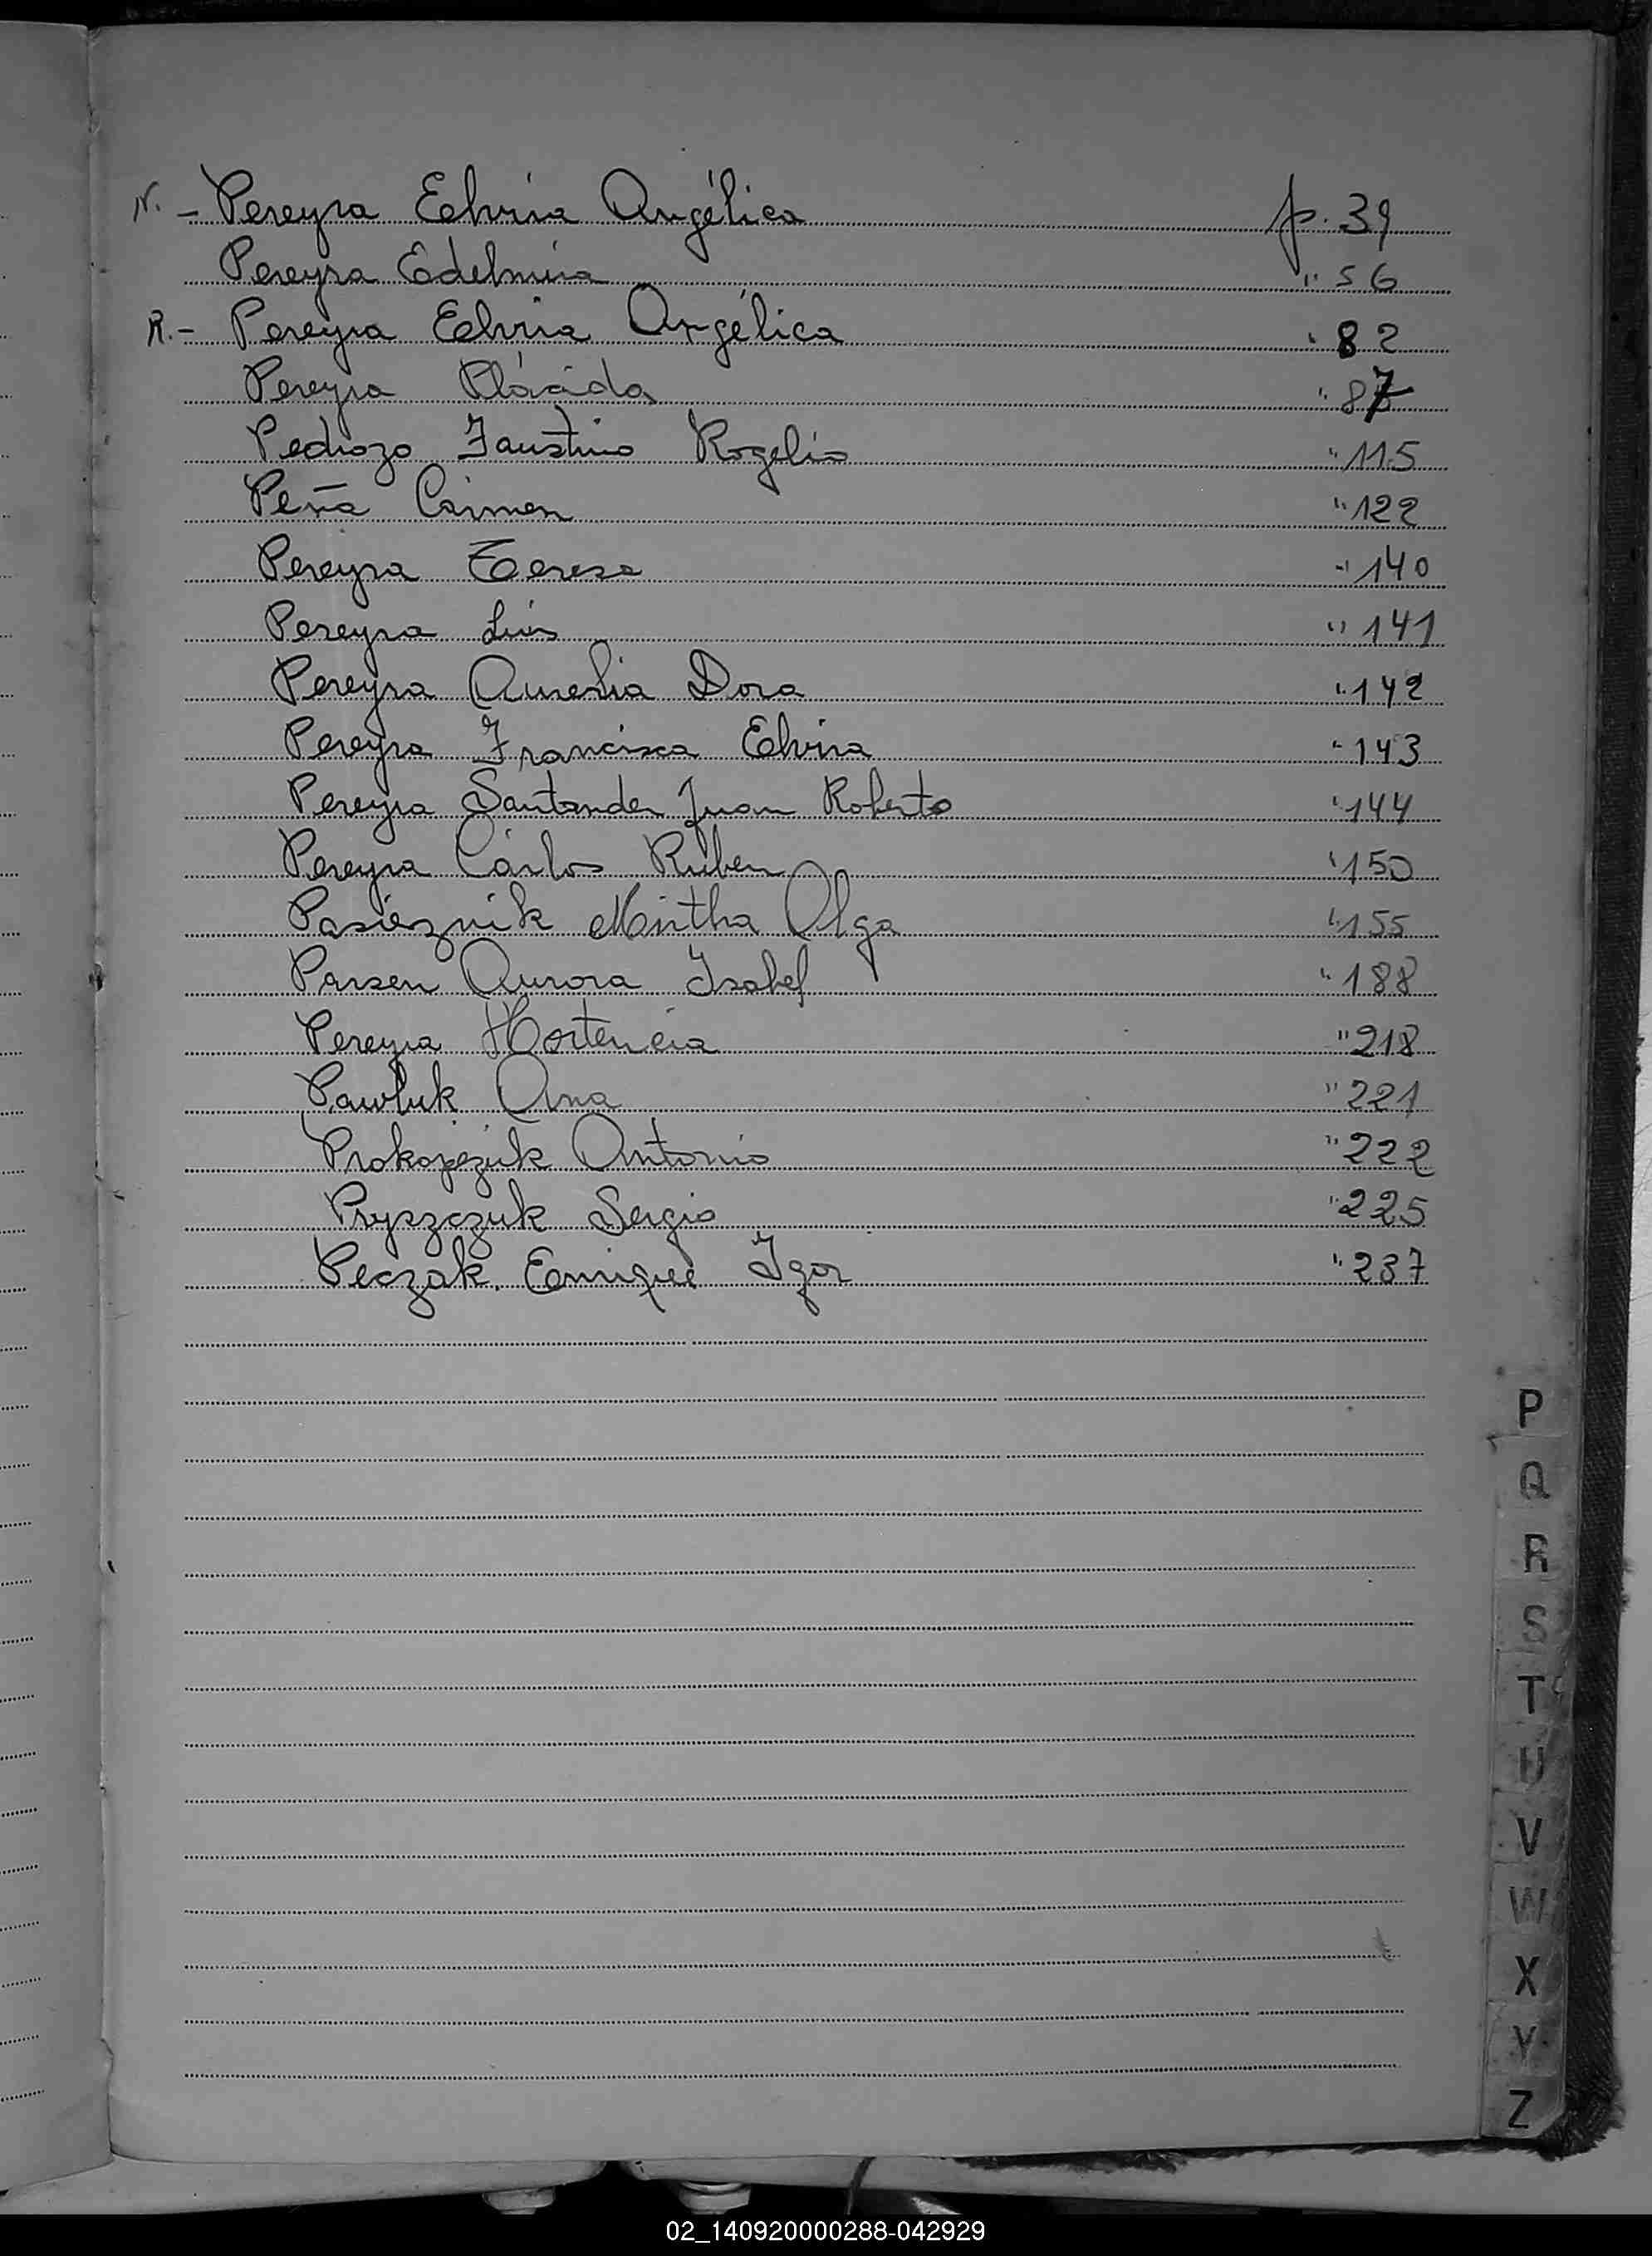 N. - Pereyra Elvira Angélica p. 39
Pereyra Edelmira " 56
R. - Pereyra Elvira Angélica " 82
Pereyra Plácida " 87
Pedrozo Faustino Rogelio " 115
Peña Carmen " 122
Pereyra Teresa " 140
Pereyra Luis " 141
Pereyra Aurelia Dora " 142
Pereyra Francisca Elvira " 143
Pereyra Santander Juan Roberto " 144
Pereyra Cárlos Ruben " 150
Pasieznik Mirtha Olga " 155
Parsen Aurora Isabel " 188
Pereyra Hortencia " 218
Pawluk Ana " 221
Prokopczuk Antonio " 222
Pryszczuk Sergio " 225
Peczak Enrique Igor " 237
P
Q
R
S
T
U
V
W
X
Y
Z
02_140920000288-042929